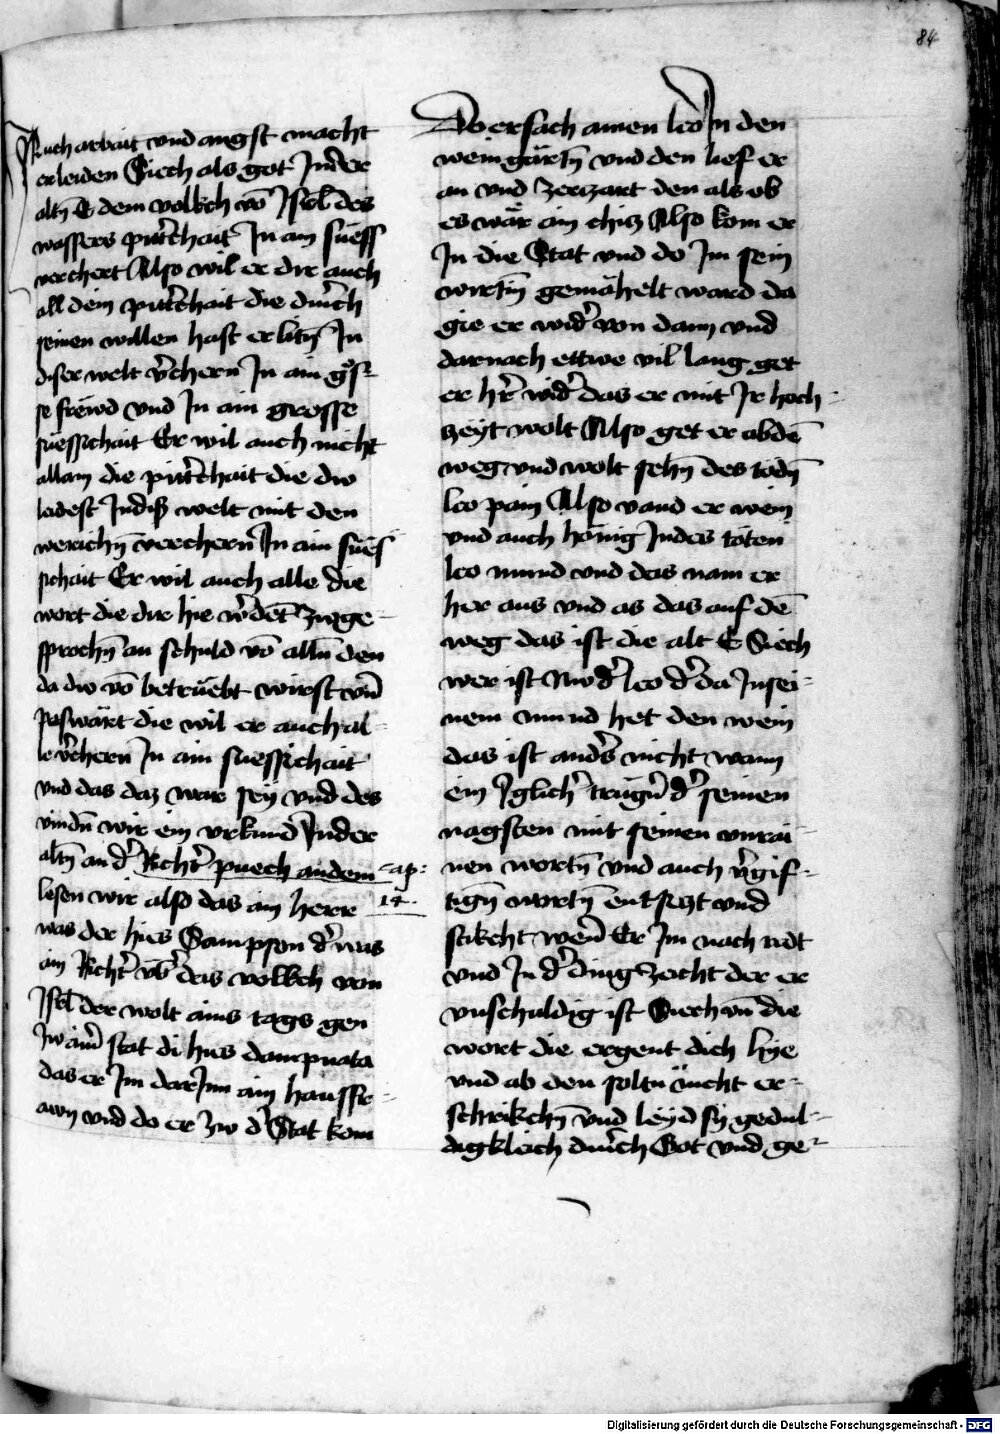 84
Auch arbait vnd angst macht
erleiden Siech als got Jnder
altn̄ E dem volkch vō Jsrl̄ des
wassers pitt̄chait Jn ain suess
verchert Also wil er dir auch
all dein pitt̄chait die durch
seinen willen hast erlitn̄ Jn
diser welt v̄chern̄ Jn ain gros-
se frëwd vnd Jn ain grosse
süessichait Er wil auch nicht
allain die pitt̄chait die dw
leidest Jndiß welt mit den
werichn̄ verchern̄ Jn ain sües
sichait Er wil auch alle die
wort die dir hie w̄dēt zuge-
sprochn̄ an schuld vō alln̄ den
da dw vō betrüebt wirst vn̄
paswärt die wil er auch al-
le v̄chern Jn ain suessichait
vnd das daz war sey vnd des
vindn̄ wir ein vrkund Jnder
altn̄ an d̄ Richt̄ puech andem
cap:
14
lesen wir also das ain herr
was der hies Sampson d̄ was
ain Richt̄ vb̄ das volkch von
Jsrl̄ der wolt ains tags gen
zw ain̄ stat di hies dampnata
das er Jm darJnn ain hausfr-
awn vnd do er zw d̄ Stat kom
Do ersach ainen leo Jn den
weingärtn̄ vnd den lief er
an vnd zerzart den als ob
es wär ain chicz Also kom er
Jn die Stat vnd do Jm sein
wirtin̄ gemähelt ward da
gie er wid̄ von dann vnd
darnach ettwe vil lang get
er hr̄ wid̄ das er mit Jr hoch-
zeyt wolt Also get er ab dē
weg vnd wolt sehn̄ des todn̄
leo pain Also vand er wein
vnd auch hönig Jndes toten
leo mund vnd das nam er
her aus vnd as das auf dē
weg das ist die alt E Siech
wer ist Nw d̄ leo d̄ da Jnsei-
nem mund het den wein
das ist and̄s nicht wann
ein Jglich̄ trügn̄ d̄ seinen
nagsten mit seinen vnrai-
nen wortn̄ vnd auch v̄gif-
tign̄ wortn̄ entseczt vnd
stikcht wen̄ Er Jm nach redt
vnd Jn d̄ ding zeicht der er
vnschuldig ist Siech vn̄ die
wort die ergent dich hye
vnd ab den soltu nicht er-
schrikchn̄ vnd leyd sy gedul-
digkleich durch Got vnd ge-
Digitalisierung gefördert durch die Deutsche Forschungsgemeinschaft - DFG